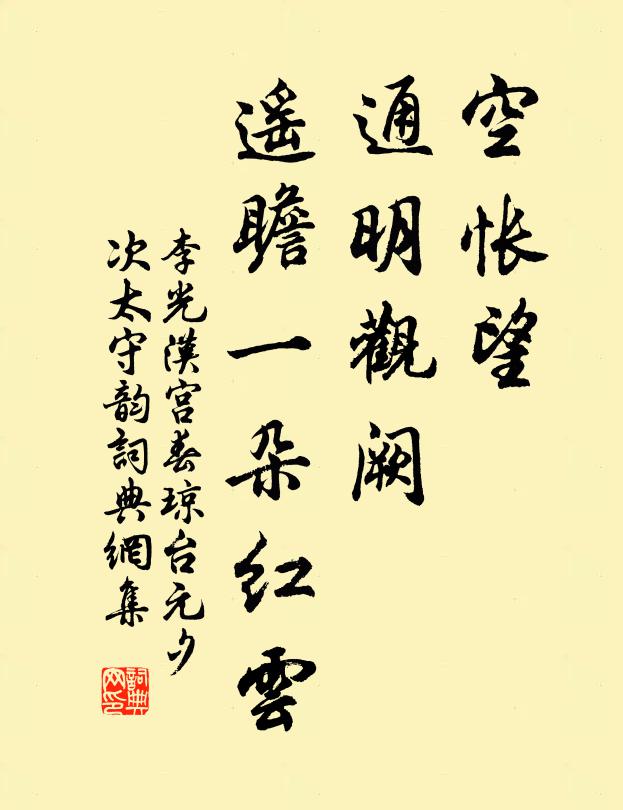 空悵望
通明觀闕
遥瞻一朵紅雲
李光漢宮春瓊台元夕
次太守韵詞典網集
詞典网印